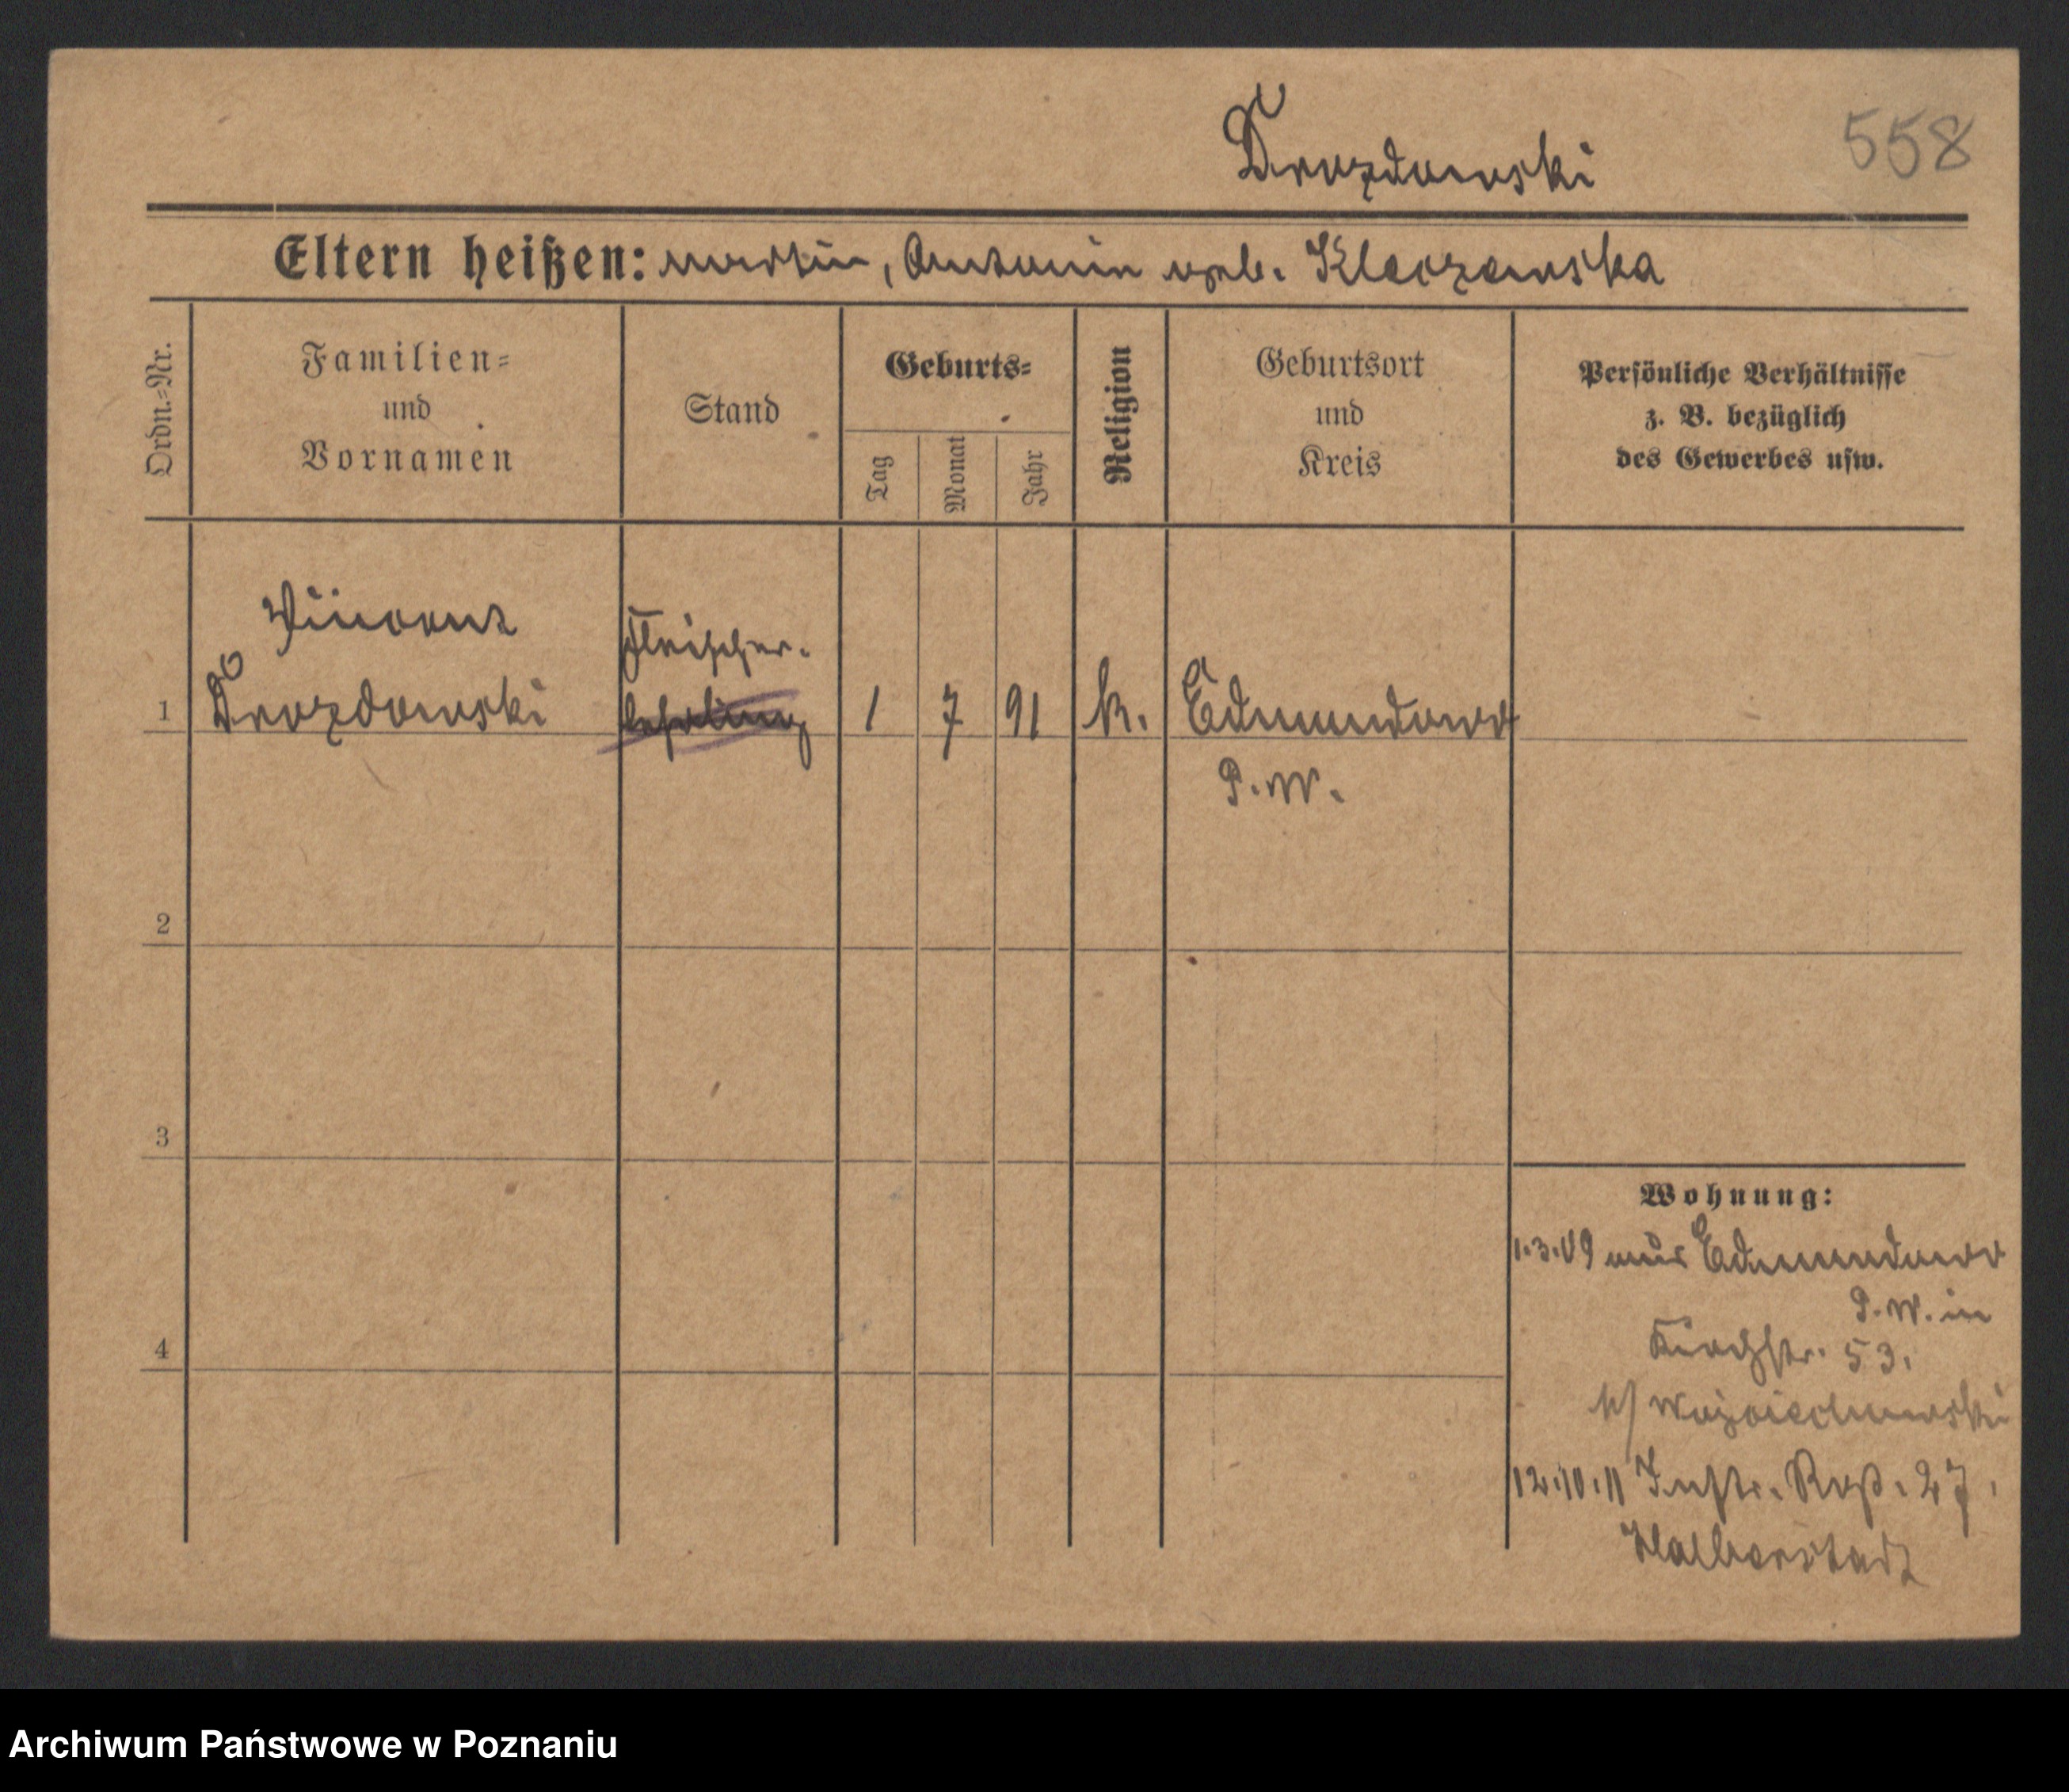 Drozdowski
558
Eltern heißen: Martin, Antonin geb. Kleczewska
Ordn.=Nr.
Familien=
und
Vornamen
Stand
Geburts=
Tag
Monat
Jahr
Religion
Geburtsort
und
Kreis
Persönliche Verhältnisse
z. B. bezüglich
des Gewerbes usw.
Vincent
Fleischer.
1 Drozdowski lehrling 1 7 91 k. Edmundowo
P. W.
2
3
4
Wohnung:
1.3.09 aus Edmundowo
P. W. in
Kirchstr. 53.
b/ Wojciechowski
12.10.11 27.
Halberstadt
Archiwum Państwowe w Poznaniu